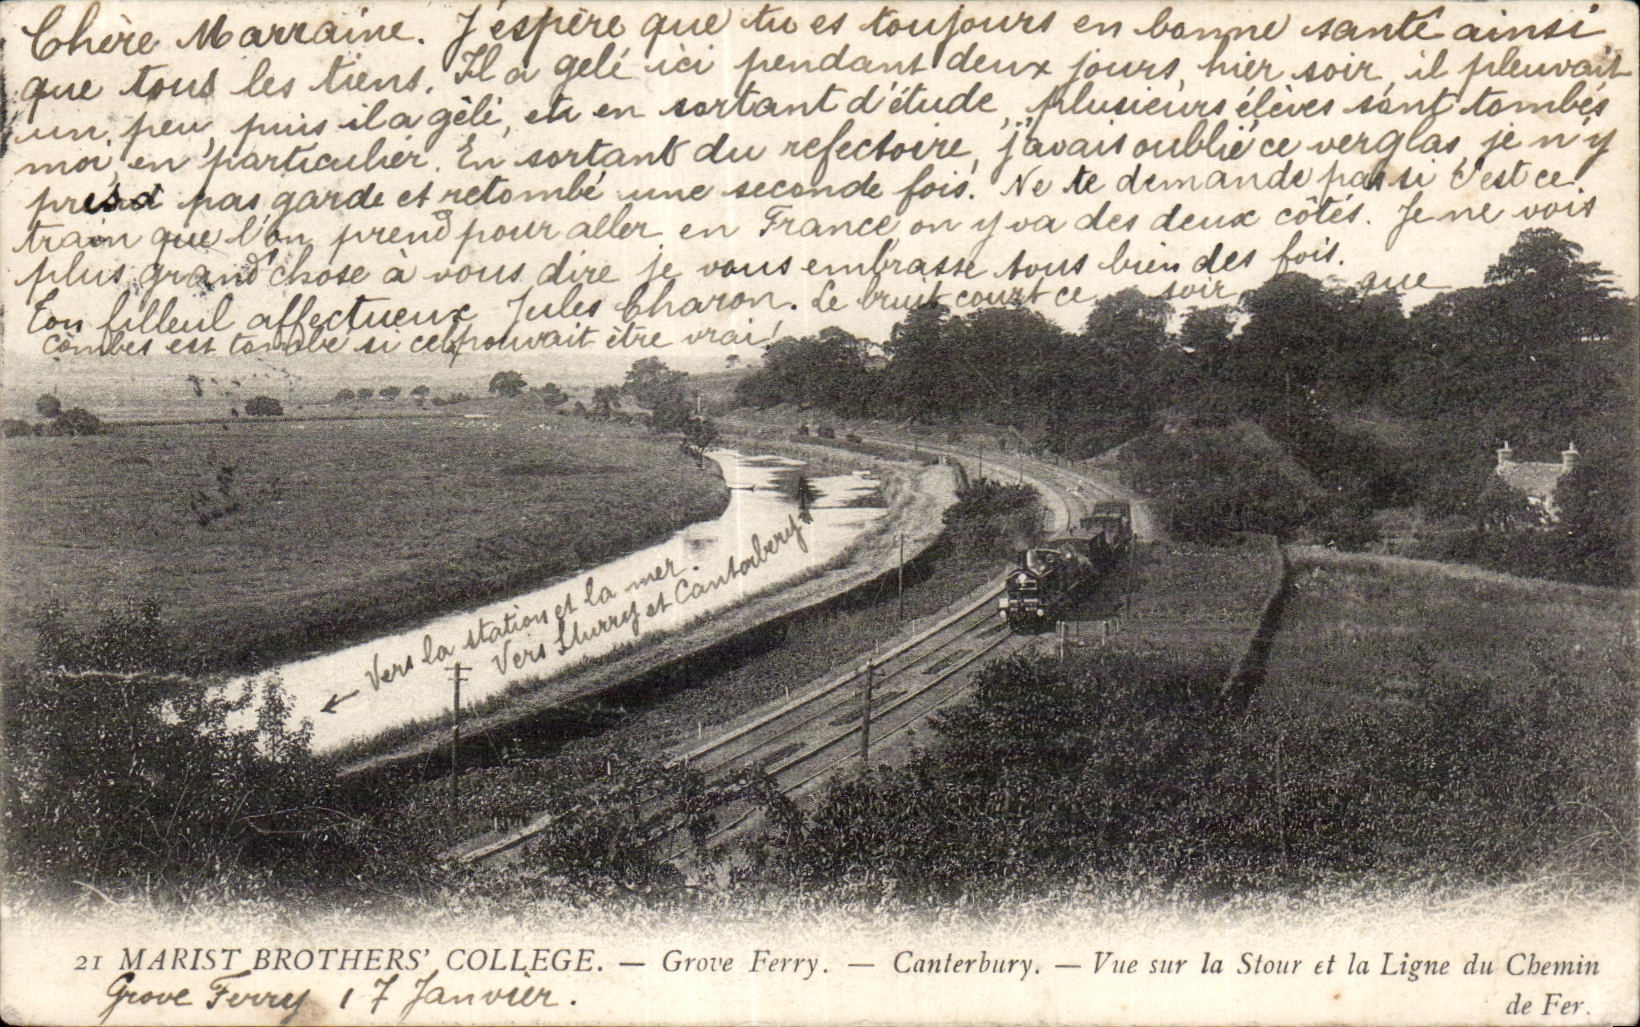 Chère Marraine. J'espère que tu es toujours en bonne santé ainsi
que tous les tiens. Il a gelé ici pendant deux jours, hier soir, il pleuvait
un peu, puis il a gèlé, et en sortant d'étude, plusieurs élèves sont tombés
moi en particulier. En sortant du refectoire, j'avais oublié ce verglas, je n'y
pas garde et retombé une seconde fois. Ne te demande pas si c'est ce
train que l'on prend pour aller en France, on y va des deux côtés. Je ne vois
plus grand chose à vous dire je vous embrasse tous bien des fois.
Ton filleul affectueux Jules Charon. Le bruit court ce soir que
combes est tombé si cela pouvait être vrai!
← Vers la station et la mer.
Vers Sturry et Cantorbery
21 MARIST BROTHERS' COLLEGE. — Grove Ferry. — Canterbury. — Vue sur la Stour et la Ligne du Chemin
de Fer.
Grove Ferry 17 Janvier.